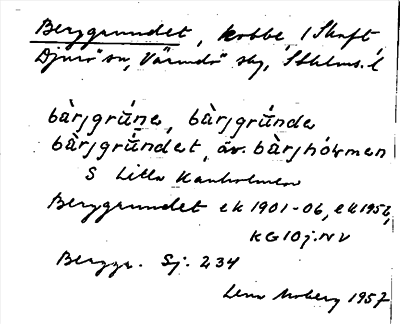 Berggrundet, kobbe, 1 Skaft,
Djurö sn, Värmdö skg, Sthlms. l
bàrjgrúne, bàrjgrúnda
bàrjgrúndet, äv. bàrjhólmen
S Lilla Kanholmen
Berggrundet ek 1901-06, ek 1952,
KG 10 j. NV
Berggr. Sj. 234
1957